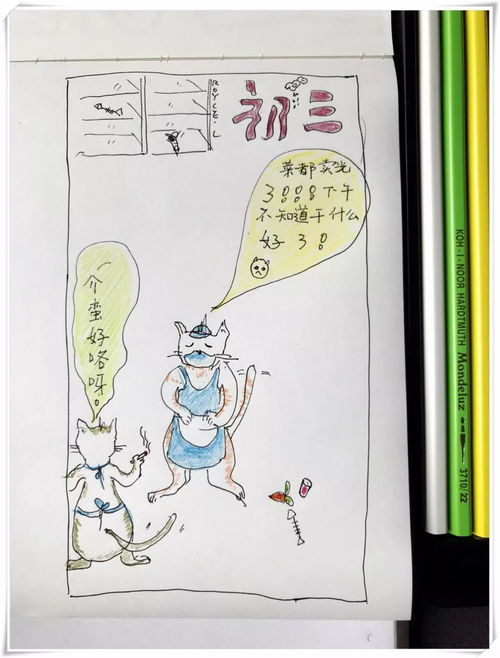 ROYCE.L
初三
菜都卖光
了!!!!下午
不知道干什么
好了!
介蛮好咯呀!
KOH-I-NOOR HARDTMUTH Mondeluz 3710/22